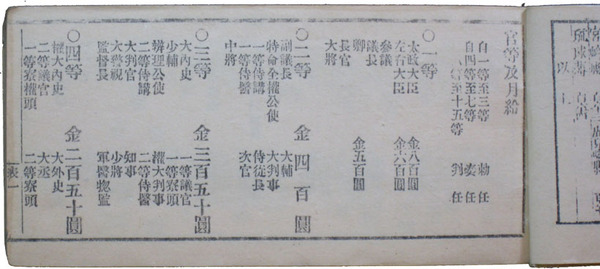 官等及月給
自一等至三等 勅任
自四等至七等 奏任
八等至十五等 判任
〇一等
太政大臣 金八百圓
左右大臣 金六百圓
參議
議長
卿 金五百圓
長官
大將
〇二等 金四百圓
副議長 大輔
特命全權公使 大判事
一等侍講 侍從長
一等侍醫 次官
中將
〇三等 金三百五十圓
大内史 一等議官
少輔 一等寮頭
辨理公使 權大判事
二等侍講 二等侍醫
大判官 知事
大警視 少將
監督長 軍醫總監
〇四等 金二百五十圓
權大内史 大外史
二等議官 大丞
一等寮權頭 二等寮頭
表一
以上